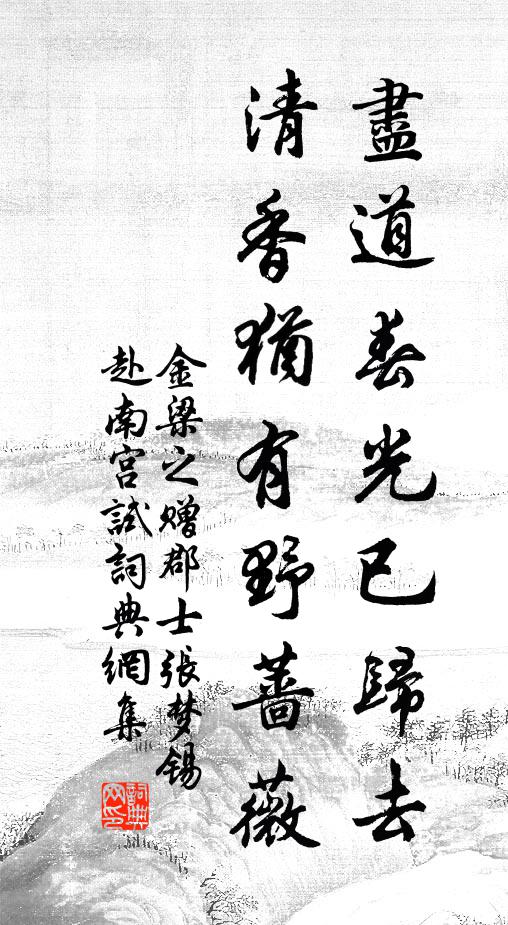 盡道春光已歸去
清香猶有野薔薇
金梁之贈郡士張梦錫
赴南宫試詞典網集
詞典
网印